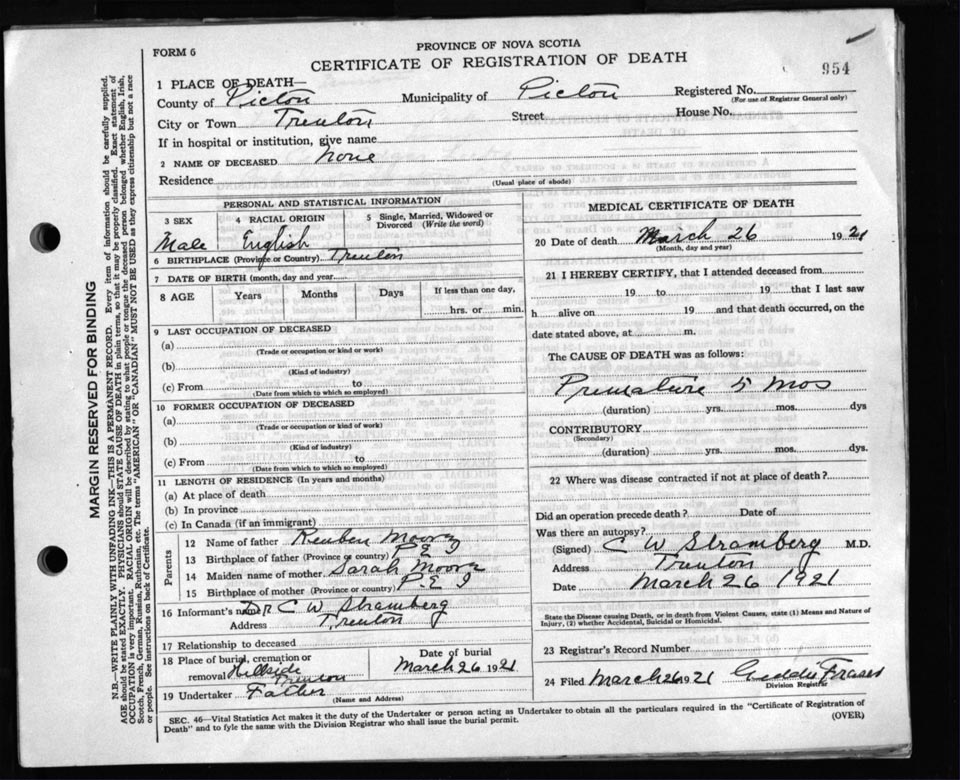 PROVINCE OF NOVA SCOTIA
FORM 6
CERTIFICATE OF REGISTRATION OF DEATH
954
1 PLACE OF DEATH—
County of Pictou Municipality of Pictou Registered No.
(For use of Registrar General only)
City or Town Trenton Street House No.
If in hospital or institution, give name
2 NAME OF DECEASED None
Residence
(Usual place of abode)
PERSONAL AND STATISTICAL INFORMATION
3 SEX 4 RACIAL ORIGIN 5 Single, Married, Widowed or Divorced (Write the word)
Male English
6 BIRTHPLACE (Province or Country) Trenton
7 DATE OF BIRTH (month, day and year)
8 AGE Years Months Days If less than one day,
hrs. or min.
9 LAST OCCUPATION OF DECEASED
(a)
(Trade or occupation or kind of work)
(b)
(Kind of industry)
(c) From to
(Date from which to which so employed)
10 FORMER OCCUPATION OF DECEASED
(a)
(Trade or occupation or kind of work)
(b)
(Kind of industry)
(c) From to
(Date from which to which so employed)
11 LENGTH OF RESIDENCE (In years and months)
(a) At place of death
(b) In province
(c) In Canada (if an immigrant)
Parents
12 Name of father Reuben Moore
13 Birthplace of father (Province or country) P.E I
14 Maiden name of mother Sarah Moore
15 Birthplace of mother (Province or country) P.E I
16 Informant's name Dr C W Stramberg
Address Trenton
17 Relationship to deceased
18 Place of burial, cremation or removal Hillside Trenton
Date of burial
March 26 1921
19 Undertaker Father
(Name and Address)
MEDICAL CERTIFICATE OF DEATH
20 Date of death March 26 1921
(Month, day and year)
21 I HEREBY CERTIFY, that I attended deceased from
19 to 19 that I last saw
h alive on 19 and that death occurred, on the
date stated above, at m.
The CAUSE OF DEATH was as follows:
Premature 5 mos
(duration) yrs. mos. dys
CONTRIBUTORY
(Secondary)
(duration) yrs. mos. dys.
22 Where was disease contracted if not at place of death?
Did an operation precede death? Date of
Was there an autopsy?
(Signed) C W Stramberg M.D.
Address Trenton
Date March 26 1921
State the Disease causing Death, or in death from Violent Causes, state (1) Means and Nature of
Injury, (2) whether Accidental, Suicidal or Homicidal.
23 Registrar's Record Number
24 Filed March 26 1921 Fraser
Division Registrar
SEC. 46—Vital Statistics Act makes it the duty of the Undertaker or person acting as Undertaker to obtain all the particulars required in the "Certificate of Registration of
Death" and to fyle the same with the Division Registrar who shall issue the burial permit.
(OVER)
MARGIN RESERVED FOR BINDING
N.B.—WRITE PLAINLY WITH UNFADING INK—THIS IS A PERMANENT RECORD. Every item of information should be carefully supplied.
AGE should be stated EXACTLY. PHYSICIANS should STATE CAUSE OF DEATH in plain terms, so that it may be properly classified. Exact statement of
OCCUPATION is very important. RACIAL ORIGIN will be described by stating to what people or tongue the deceased person belonged whether English, Irish,
Scotch, French, German, Russian, Ruthenian, etc. The terms "AMERICAN" OR "CANADIAN" MUST NOT BE USED as they express citizenship but not a race
or people. See instructions on back of Certificate.